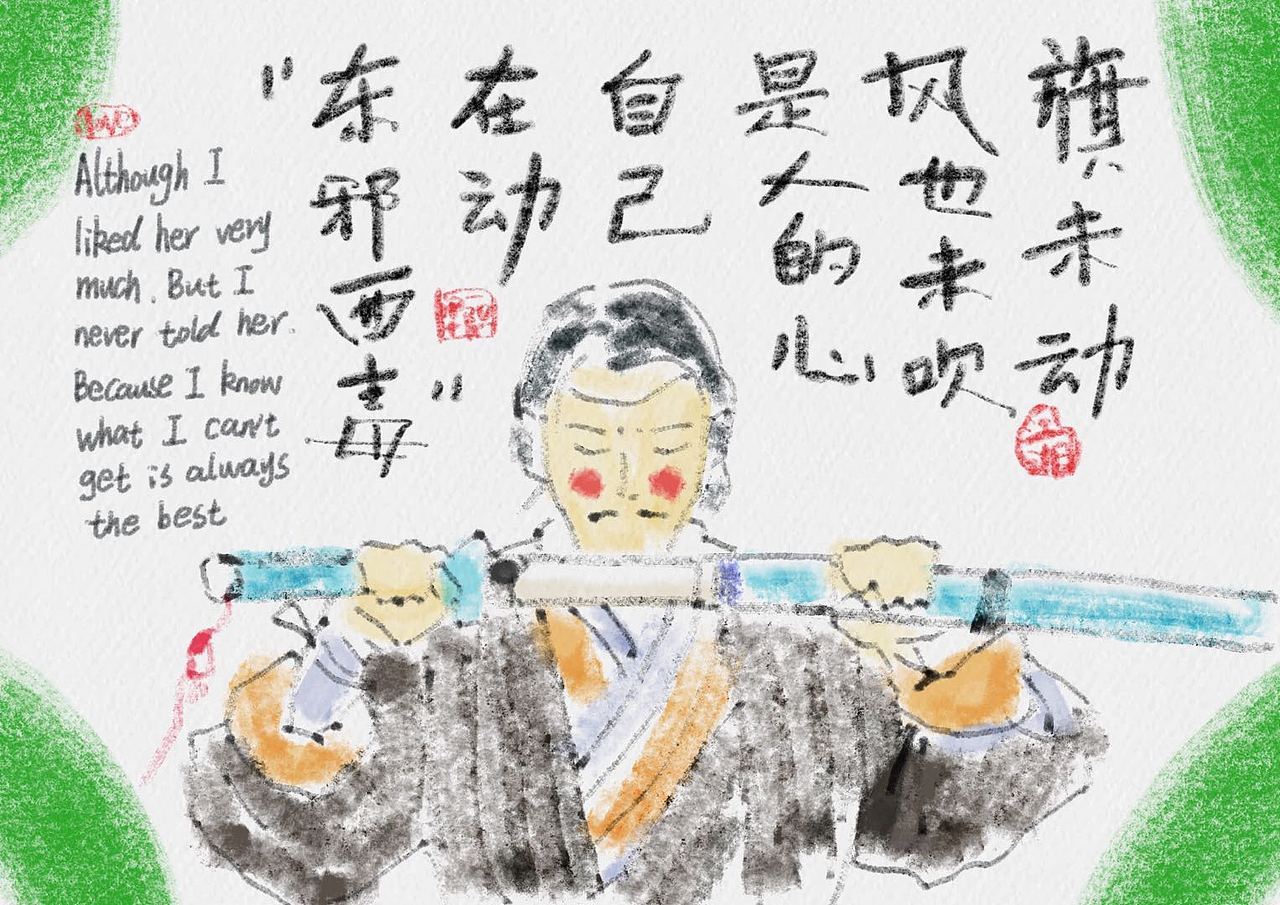 旗未动
风也未吹
是人的心
自己
在动
"东邪西毒"
Although I
liked her very
much. But I
never told her.
Because I know
what I can't
get is always
the best